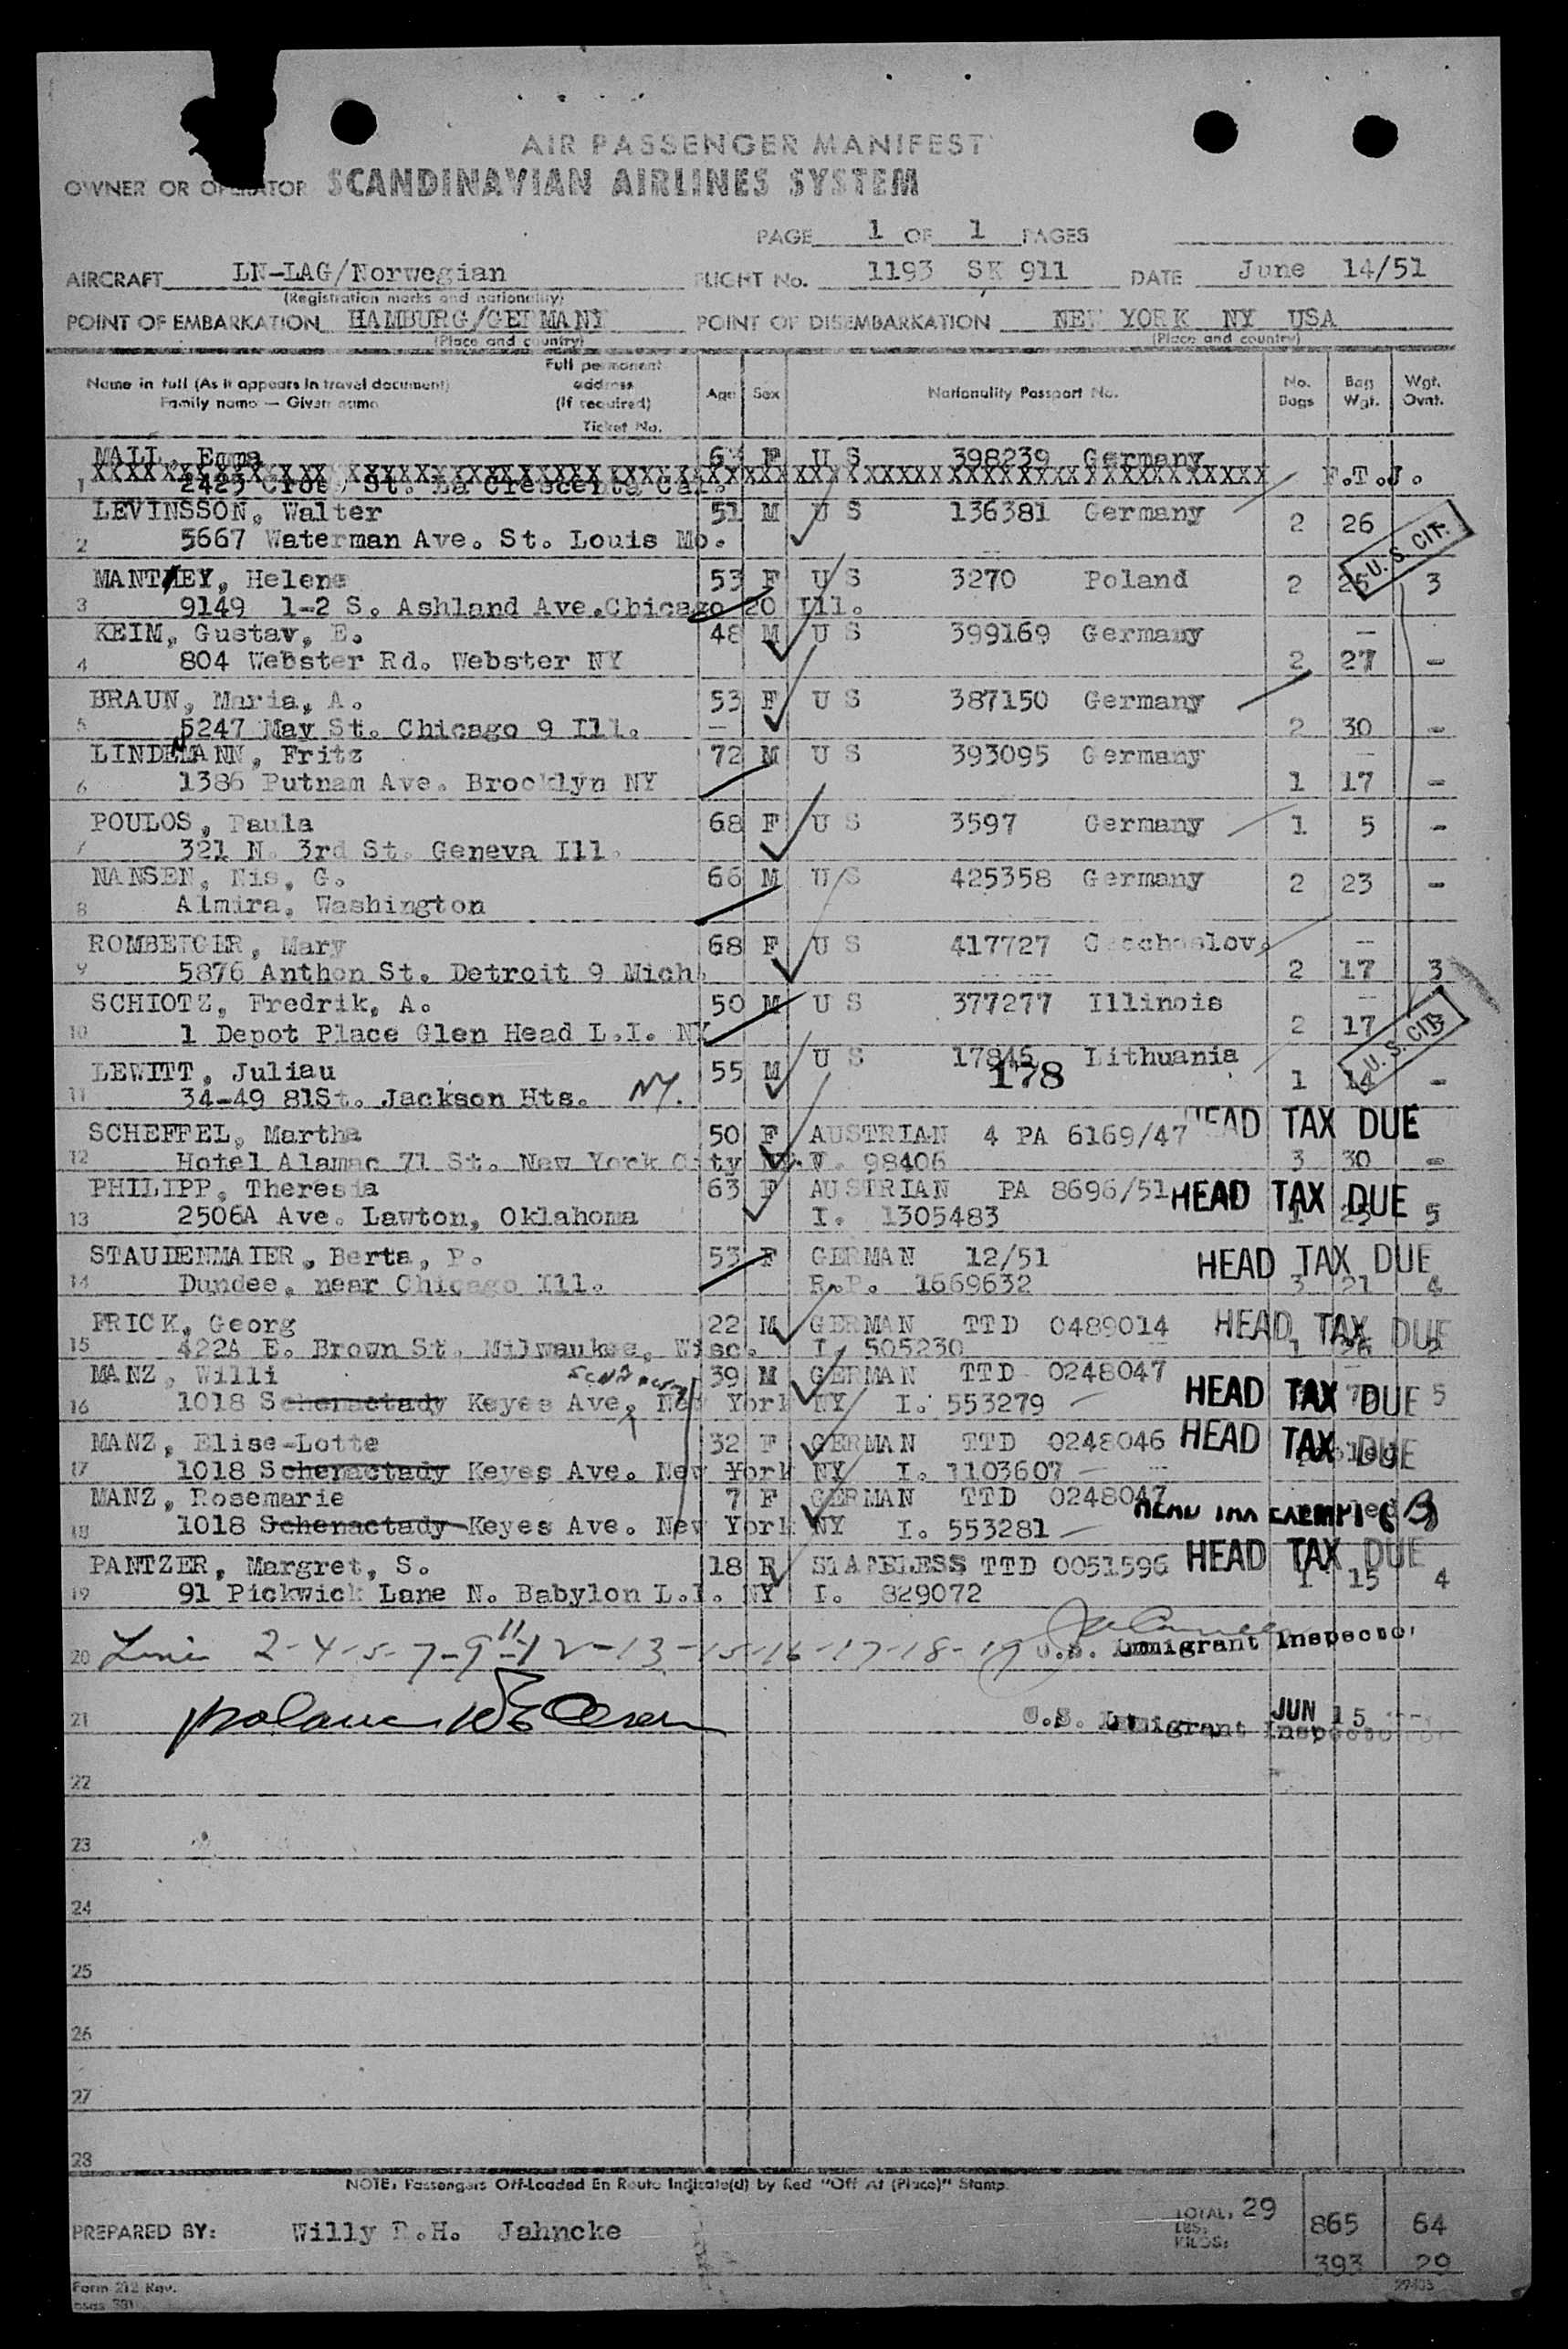 AIR PASSENGER MANIFEST
OWNER OR OPERATOR SCANDINAVIAN AIRLINES SYSTEM
PAGE 1 OF 1 PAGES
AIRCRAFT LN-LAG/Norwegian FLIGHT No. 1193 SK 911 DATE June 14/51
(Registration marks and nationality)
POINT OF EMBARKATION HAMBURG/GERMANY POINT OF DISEMBARKATION NEW YORK NY USA
(Place and country) (Place and country)
Name in full (As it appears in travel document) Family name — Given name Full permanent address (If required) Ticket No. Age Sex Nationality Passport No. No. Bags Bag Wgt. Wgt. Ovnt.
MALL, Emma F U S 398239 Germany
1 2423 St. La Crescenta Cal. F.T.J.
LEVINSSON, Walter 51 M U S 136381 Germany 2 26
2 5667 Waterman Ave. St. Louis Mo.
U. S. CIT.
MANTHEY, Helene 53 F U S 3270 Poland 2 25 3
3 9149 1-2 S. Ashland Ave.Chicago 20 Ill.
KEIM, Gustav, E. 48 M U S 399169 Germany —
4 804 Webster Rd. Webster NY 2 27 -
BRAUN, Maria, A. 53 F U S 387150 Germany
5 5247 May St. Chicago 9 Ill. 2 30 -
LINDEMANN, Fritz 72 M U S 393095 Germany
6 1386 Putnam Ave. Brooklyn NY 1 17 -
POULOS, Paula 68 F U S 3597 Germany 1 5 -
7 321 N. 3rd St. Geneva Ill.
NANSEN, Nis, G. 66 M U S 425358 Germany 2 23 -
8 Almira, Washington
Mary 68 F U S 417727 Czechoslov.
9 5876 Anthon St. Detroit 9 Mich. 2 17 3
SCHIOTZ, Fredrik, A. 50 M U S 377277 Illinois
10 1 Depot Place Glen Head L.I. NY 2 17
U. S. CIT.
LEWITT, Juliau 55 M U S 17846 Lithuania
178
11 34-49 81St. Jackson Hts. NY. 1 14 -
SCHEFFEL, Martha 50 F AUSTRIAN 4 PA 6169/47 HEAD TAX DUE
12 Hotel Alamac 71 St. New York City V. 98406 3 30 -
PHILIPP, Theresia 63 F AUSTRIAN PA 8696/51 HEAD TAX DUE
13 2506A Ave. Lawton, Oklahoma I. 1305483 1 25 5
STAUDENMAIER, Berta, P. 53 F GERMAN 12/51 HEAD TAX DUE
14 Dundee, near Chicago Ill. R.P. 1669632 3 21 4
FRICK, Georg 22 M GERMAN TTD 0489014 HEAD TAX DUE
15 422A E. Brown St. Milwaukee, Wisc. I. 505230 1 26
MANZ, Willi 39 M GERMAN TTD 0248047 HEAD TAX DUE
16 1018 Schenactady Keyes Ave, New York NY I. 553279 5
MANZ, Elise-Lotte 32 F GERMAN TTD 0248046 HEAD TAX DUE
17 1018 Schenactady Keyes Ave. New York NY I. 1103607
MANZ, Rosemarie 7 F GERMAN TTD 0248047 HEAD TAX EXEMPT
18 1018 Schenactady Keyes Ave. New York NY I. 553281
PANTZER, Margret, S. 18 F STATELESS TTD 0051596 HEAD TAX DUE
19 91 Pickwick Lane N. Babylon L.I. NY I. 829072 1 15 4
20 2-4-5-7-9-11-12-13-15-16-17-18-19 U.S. Immigrant Inspector
21 U.S. Immigrant Inspector JUN 15
22
23
24
25
26
27
28
NOTE: Passengers Off-Loaded En Route Indicate(d) by Red "Off At (Place)" Stamp.
PREPARED BY: Willy R.H. Jahncke TOTAL: 29
LBS: 865 64
KILOS: 393 29
Form 212 Rev.